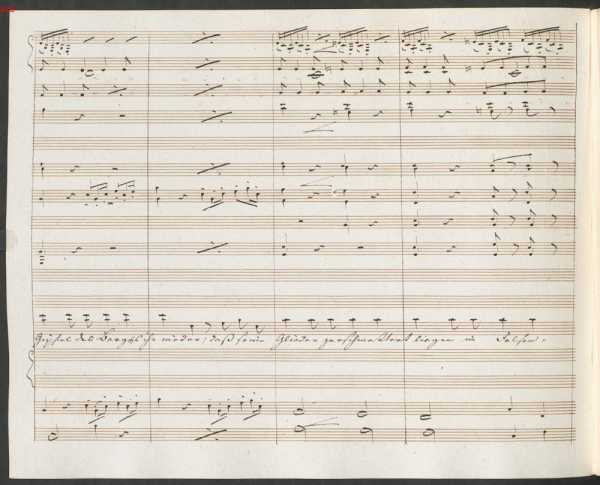 Gipfel des Berges sie nieder, daß seine Glieder zerschmettert liegen in Felsen.